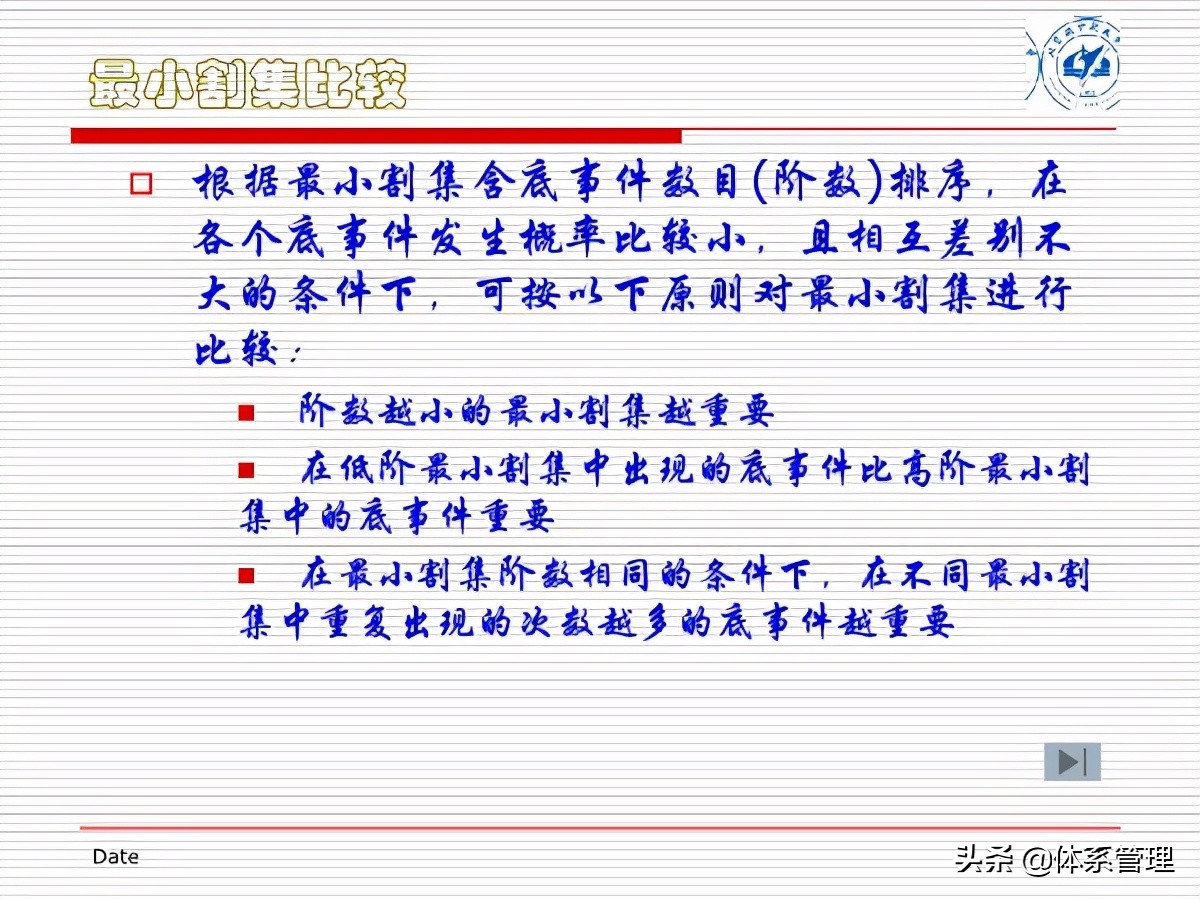 最小割集比较
根据最小割集含底事件数目(阶数)排序，在
各个底事件发生概率比较小，且相互差别不
大的条件下，可按以下原则对最小割集进行
比较：
阶数越小的最小割集越重要
在低阶最小割集中出现的底事件比高阶最小割
集中的底事件重要
在最小割集阶数相同的条件下，在不同最小割
集中重复出现的次数越多的底事件越重要
Date
头条 @体系管理